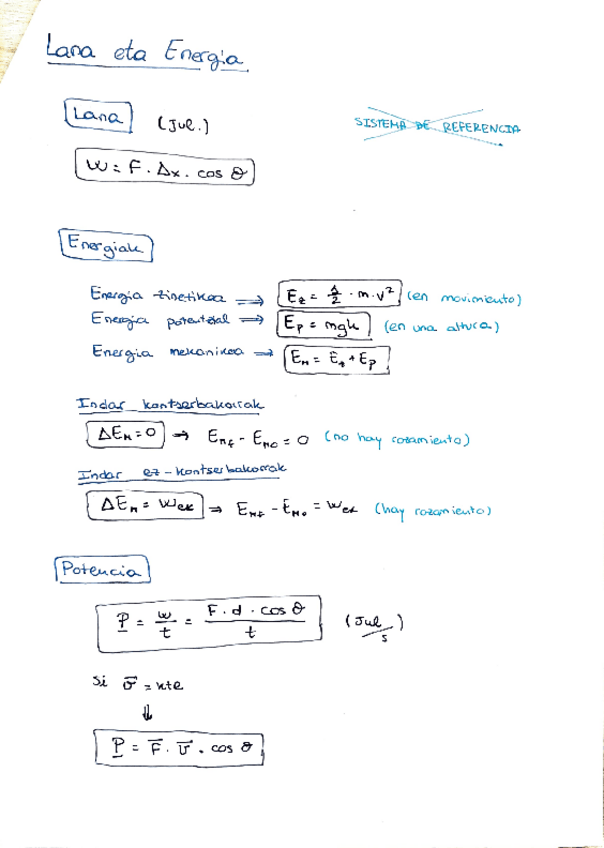 Lana eta Energia
Lana (Jul.)
SISTEMA DE REFERENCIA
W = F . Δx . cos θ
Energiak
Energia zinetikoa ⇒ Ez = 1/2 · m · v² (en movimiento)
Energia potentzial ⇒ Ep = mgh (en una altura)
Energia mekanikoa ⇒ EM = Ez + Ep
Indar kontserbakorrak
ΔEM = 0 ⇒ EMf - EMo = 0 (no hay rozamiento)
Indar ez-kontserbakorrak
ΔEM = Wek ⇒ EMf - EMo = Wek (hay rozamiento)
Potencia
P = w/t = F . d . cos θ / t (Jul/s)
Si v̄ = kte
⇓
P = F̄ . v̄ . cos θ